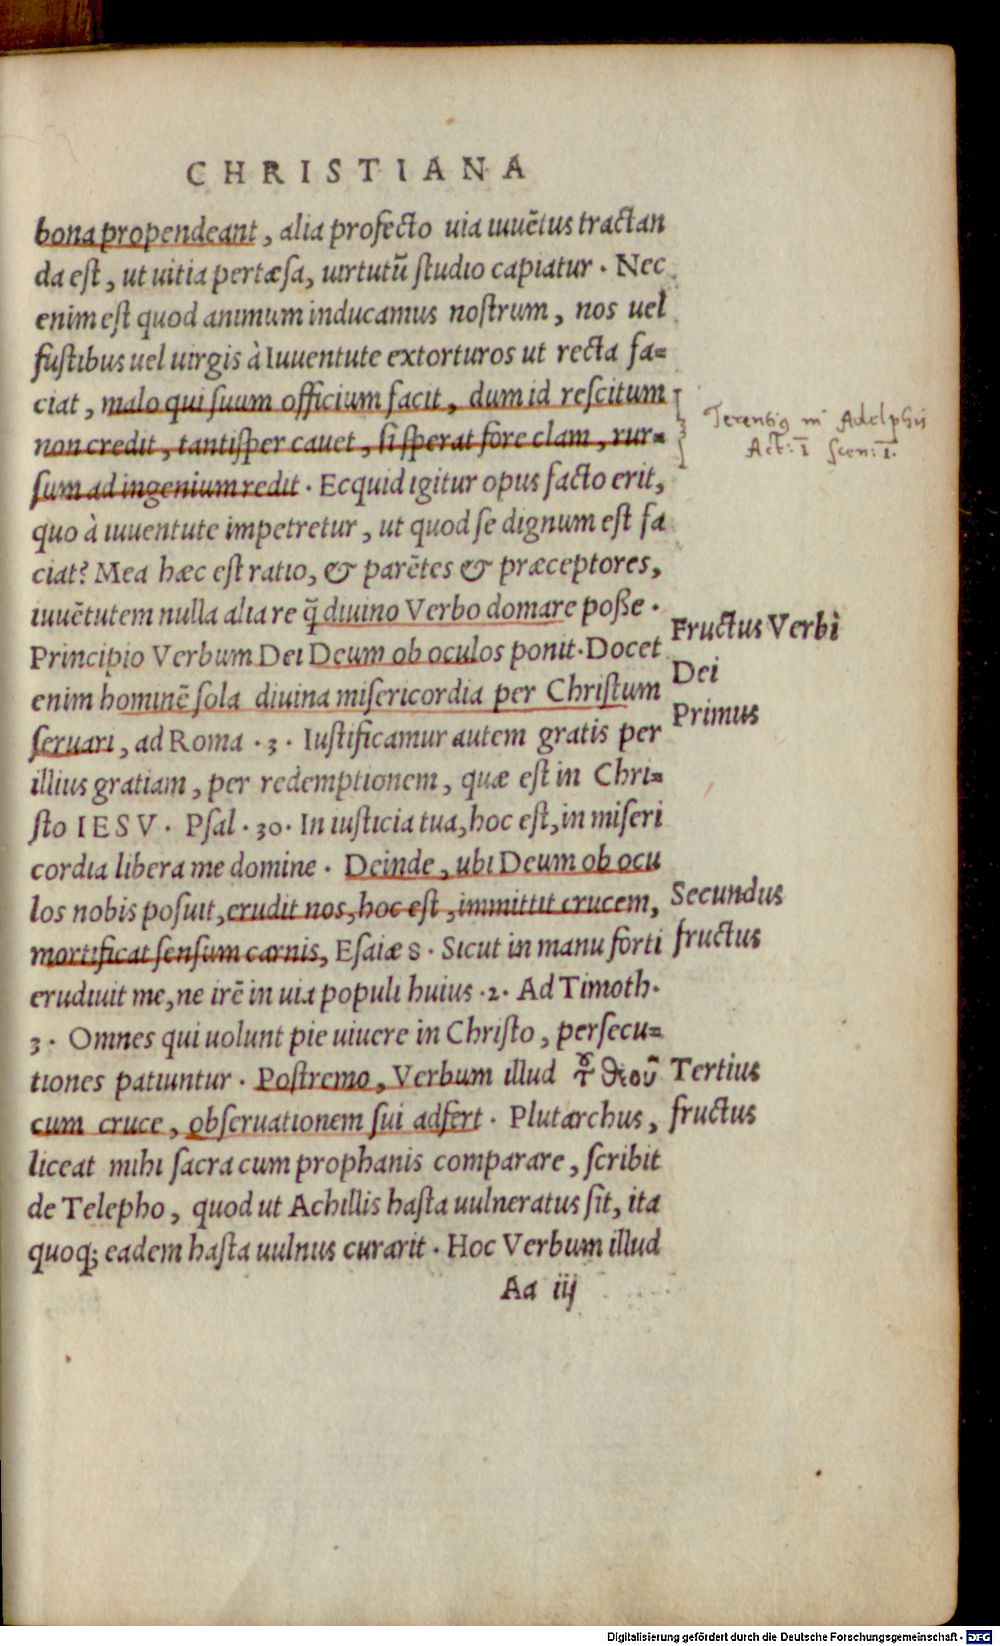 CHRISTIANA
bona propendeant, alia profecto uia iuuẽtus tractan
da est, ut uitia pertæsa, uirtutũ studio capiatur. Nec
enim est quod animum inducamus nostrum, nos uel
fustibus uel uirgis à Iuuentute extorturos ut recta fa=
ciat, malo qui suum officium facit, dum id rescitum
non credit, tantisper cauet, si sperat fore clam, rur=
sum ad ingenium redit. Ecquid igitur opus facto erit,
quo à iuuentute impetretur, ut quod se dignum est fa
ciat? Mea hæc est ratio, & parẽtes & præceptores,
iuuẽtutem nulla alia re q̃ diuino Verbo domare poße.
Principio Verbum Dei Deum ob oculos ponit. Docet
enim hominẽ sola diuina misericordia per Christum
seruari, ad Roma .3. Iustificamur autem gratis per
illius gratiam, per redemptionem, quæ est in Chri=
sto IESV. Psal.30. In iusticia tua, hoc est, in miseri
cordia libera me domine. Deinde, ubi Deum ob ocu
los nobis posuit, erudit nos, hoc est, immittit crucem,
mortificat sensum carnis, Esaiæ 8. Sicut in manu forti
erudiuit me, ne irẽ in uia populi huius .2. Ad Timoth.
3. Omnes qui uolunt pie uiuere in Christo, persecu=
tiones patiuntur. Postremo, Verbum illud τ͂ϛ θεοῦ
cum cruce, obseruationem sui adfert. Plutarchus,
liceat mihi sacra cum prophanis comparare, scribit
de Telepho, quod ut Achillis hasta uulneratus sit, ita
quoq; eadem hasta uulnus curarit. Hoc Verbum illud
Aa iij
Terentiꝰ in Adelphis
Act: 1 Scen: 1.
Fructus Verbi
Dei
Primus
Secundus
fructus
Tertius
fructus
Digitalisierung gefördert durch die Deutsche Forschungsgemeinschaft - DFG